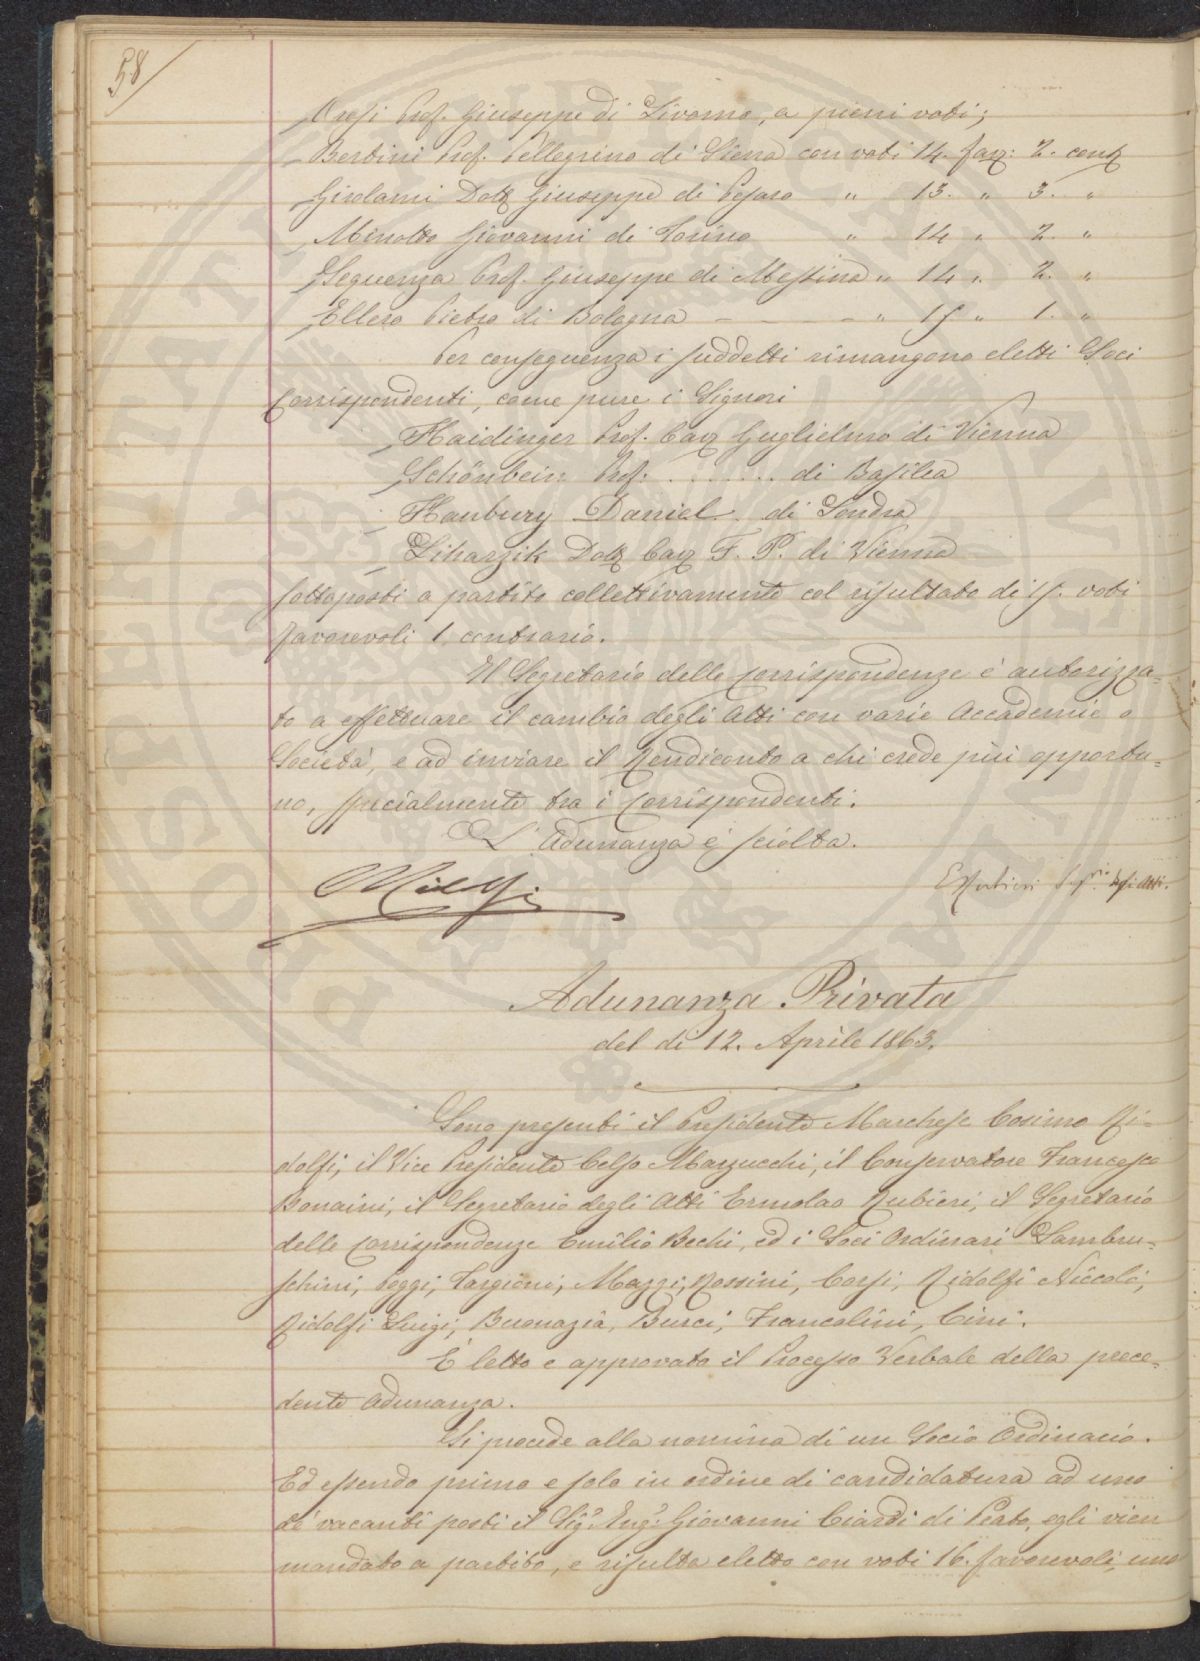 58
Orosi Prof. Giuseppe di Livorno, a pieni voti;
Bertini Prof. Pellegrino di Siena con voti 14. fav: 2. cont
Girolami Dott Giuseppe di Pesaro " 13. " 3. "
Minotto Giovanni di Torino " 14 " 2. "
Seguenza Prof. Giuseppe di Messina " 14 " 2. "
Ellero Pietro di Bologna - - - - " 15 " 1. "
Per conseguenza i suddetti rimangono eletti Soci
Corrispondenti, come pure i Signori
Haidinger Prof. Cav Guglielmo di Vienna
Schönbein Prof. . . . . . . . di Basilea
Hanbury Daniel di Londra
Liharzik Dott Cav F. P. di Vienna
sottoposti a partito collettivamente col risultato di 15. voti
favorevoli 1 contrario.
Il Segretario delle Corrispondenze è autorizza=
to a effettuare il cambio degli Atti con varie Accademie o
Società, e ad inviare il Rendiconto a chi crede più opportu=
no, specialmente tra i Corrispondenti.
L'Adunanza è sciolta.
ERubieri Seg.rio degli Atti.
Adunanza Privata
del dì 12. Aprile 1863.
Sono presenti il Presidente Marchese Cosimo Ri=
dolfi, il Vice Presidente Celso Marzucchi, il Conservatore Francesco
Bonaini, il Segretario degli Atti Ermolao Rubieri, il Segretario
delle Corrispondenze Emilio Bechi, ed i Soci Ordinari Lambru=
schini, Poggi, Targioni, Mazzi, Rossini, Corsi, Ridolfi Niccolò,
Ridolfi Luigi, Buonazia, Burci, Francolini, Cini.
È letto e approvato il Processo Verbale della prece=
dente Adunanza.
Si procede alla nomina di un Socio Ordinario.
Ed essendo primo e solo in ordine di candidatura ad uno
de' vacanti posti il Sig.r Ing.r Giovanni Ciardi di Prato, egli vien
mandato a partito, e risulta eletto con voti 16. favorevoli, uno